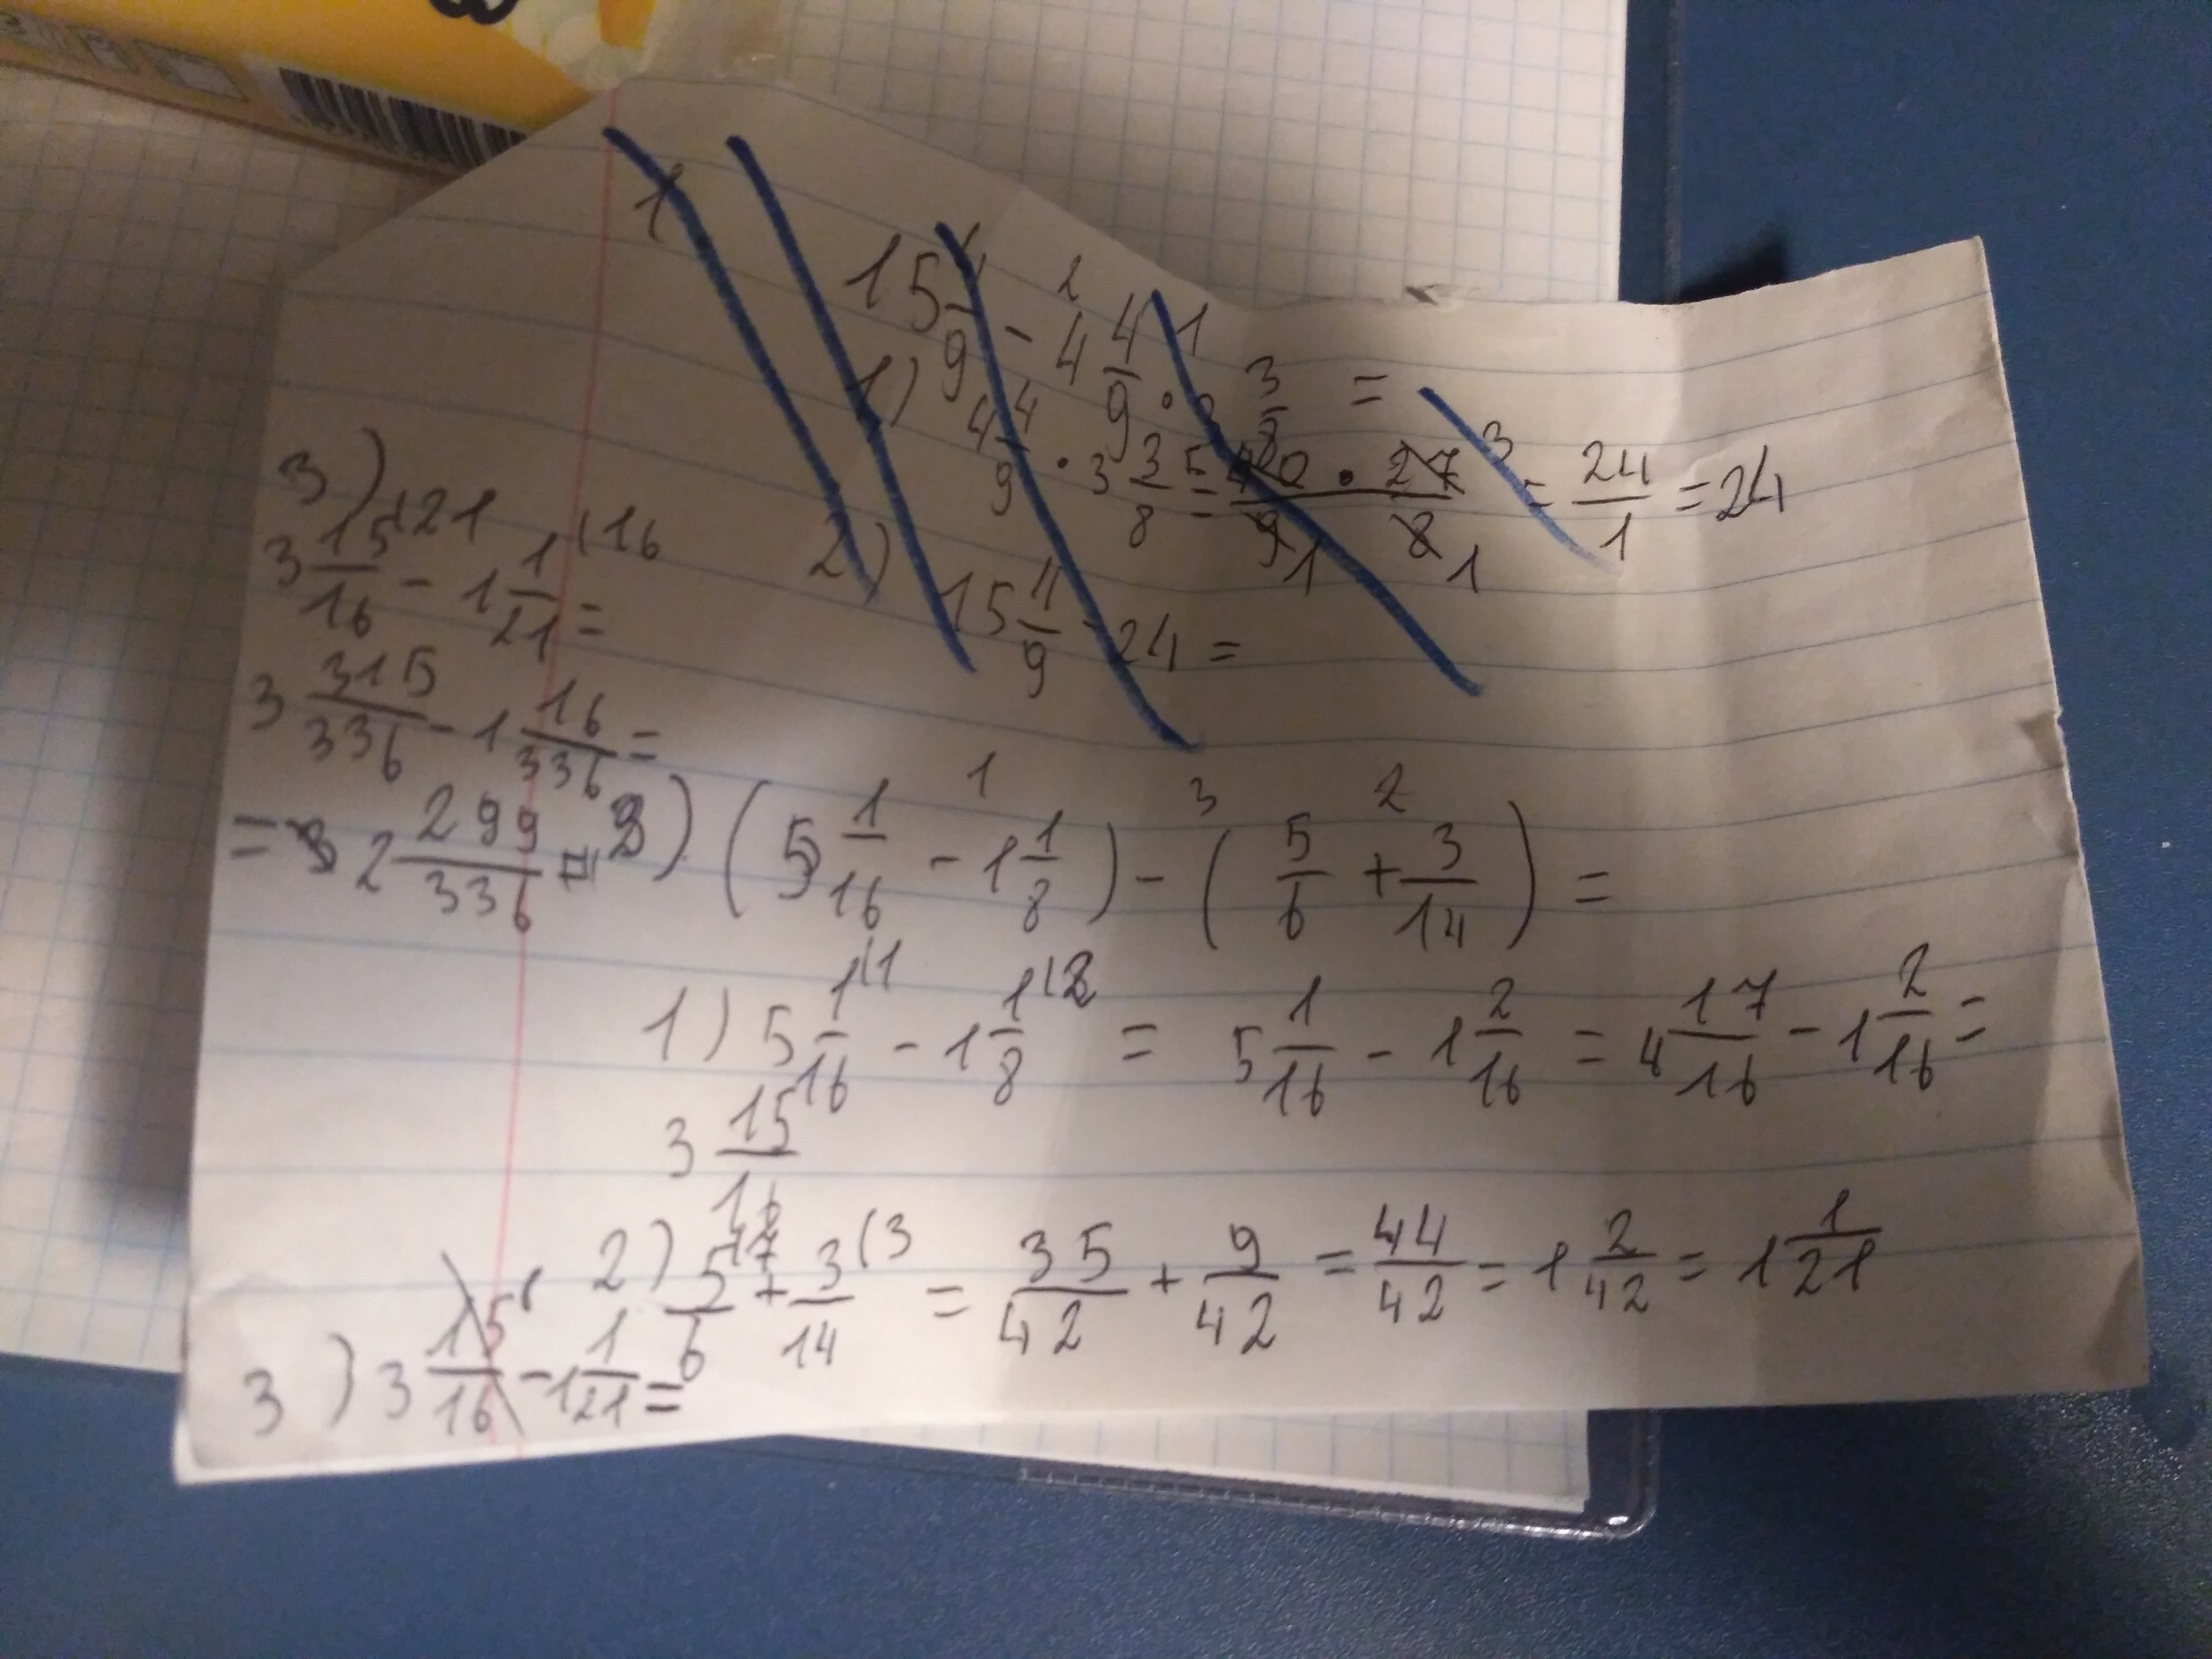 1
15 4/9 - 4 4/9 · 3 3/8 =
1) 4 4/9 · 3 3/8 = 40 · 27 / 9 8 = 24/1 = 24
2) 15 4/9 - 24 =
3)
3 15/16 (21 - 1 1/21 (16 =
3 315/336 - 1 16/336 =
= 2 299/336
(5 1/16 - 1 1/8) - (5/6 + 3/14) =
1) 5 1/16 (1 - 1 1/8 (2 = 5 1/16 - 1 2/16 = 4 17/16 - 1 2/16 =
3 15/16
2) 5/6 (7 + 3/14 (3 = 35/42 + 9/42 = 44/42 = 1 2/42 = 1 1/21
3) 3 15/16 - 1 1/21 =